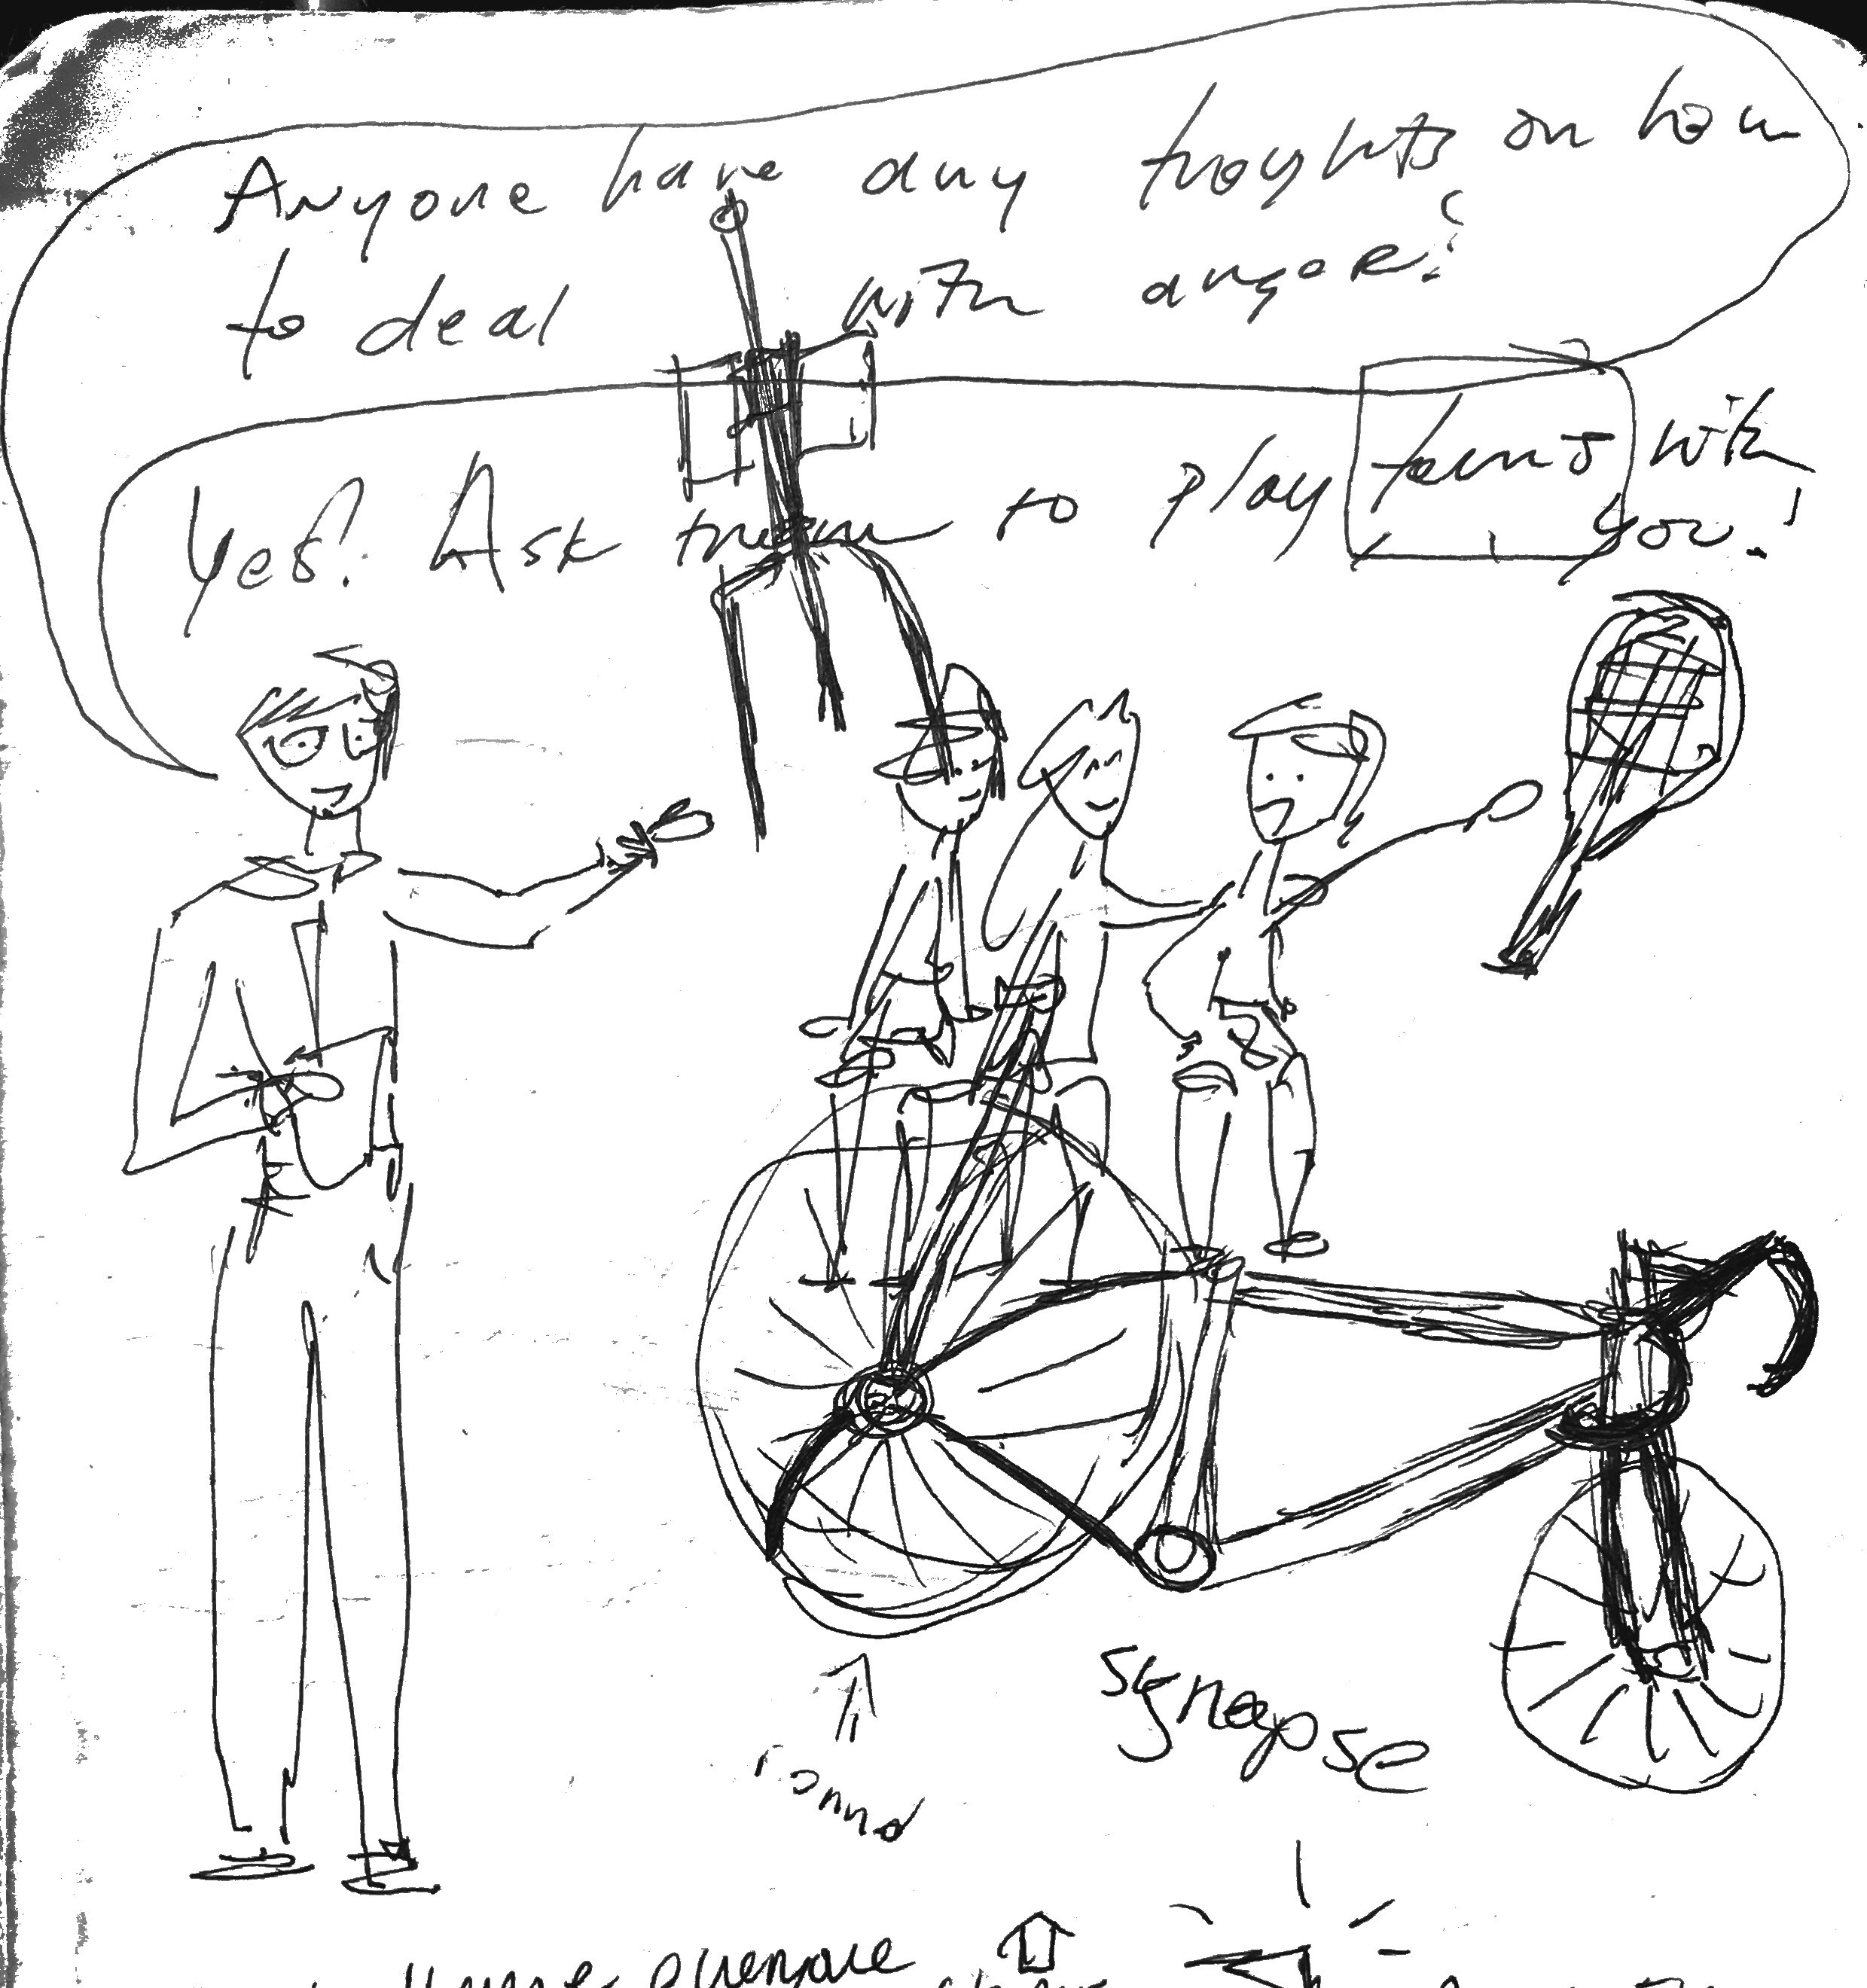 Anyone have any thoyhts on how
to deal with anger?
Yes! Ask them to play tennis with
you!
synapse
round